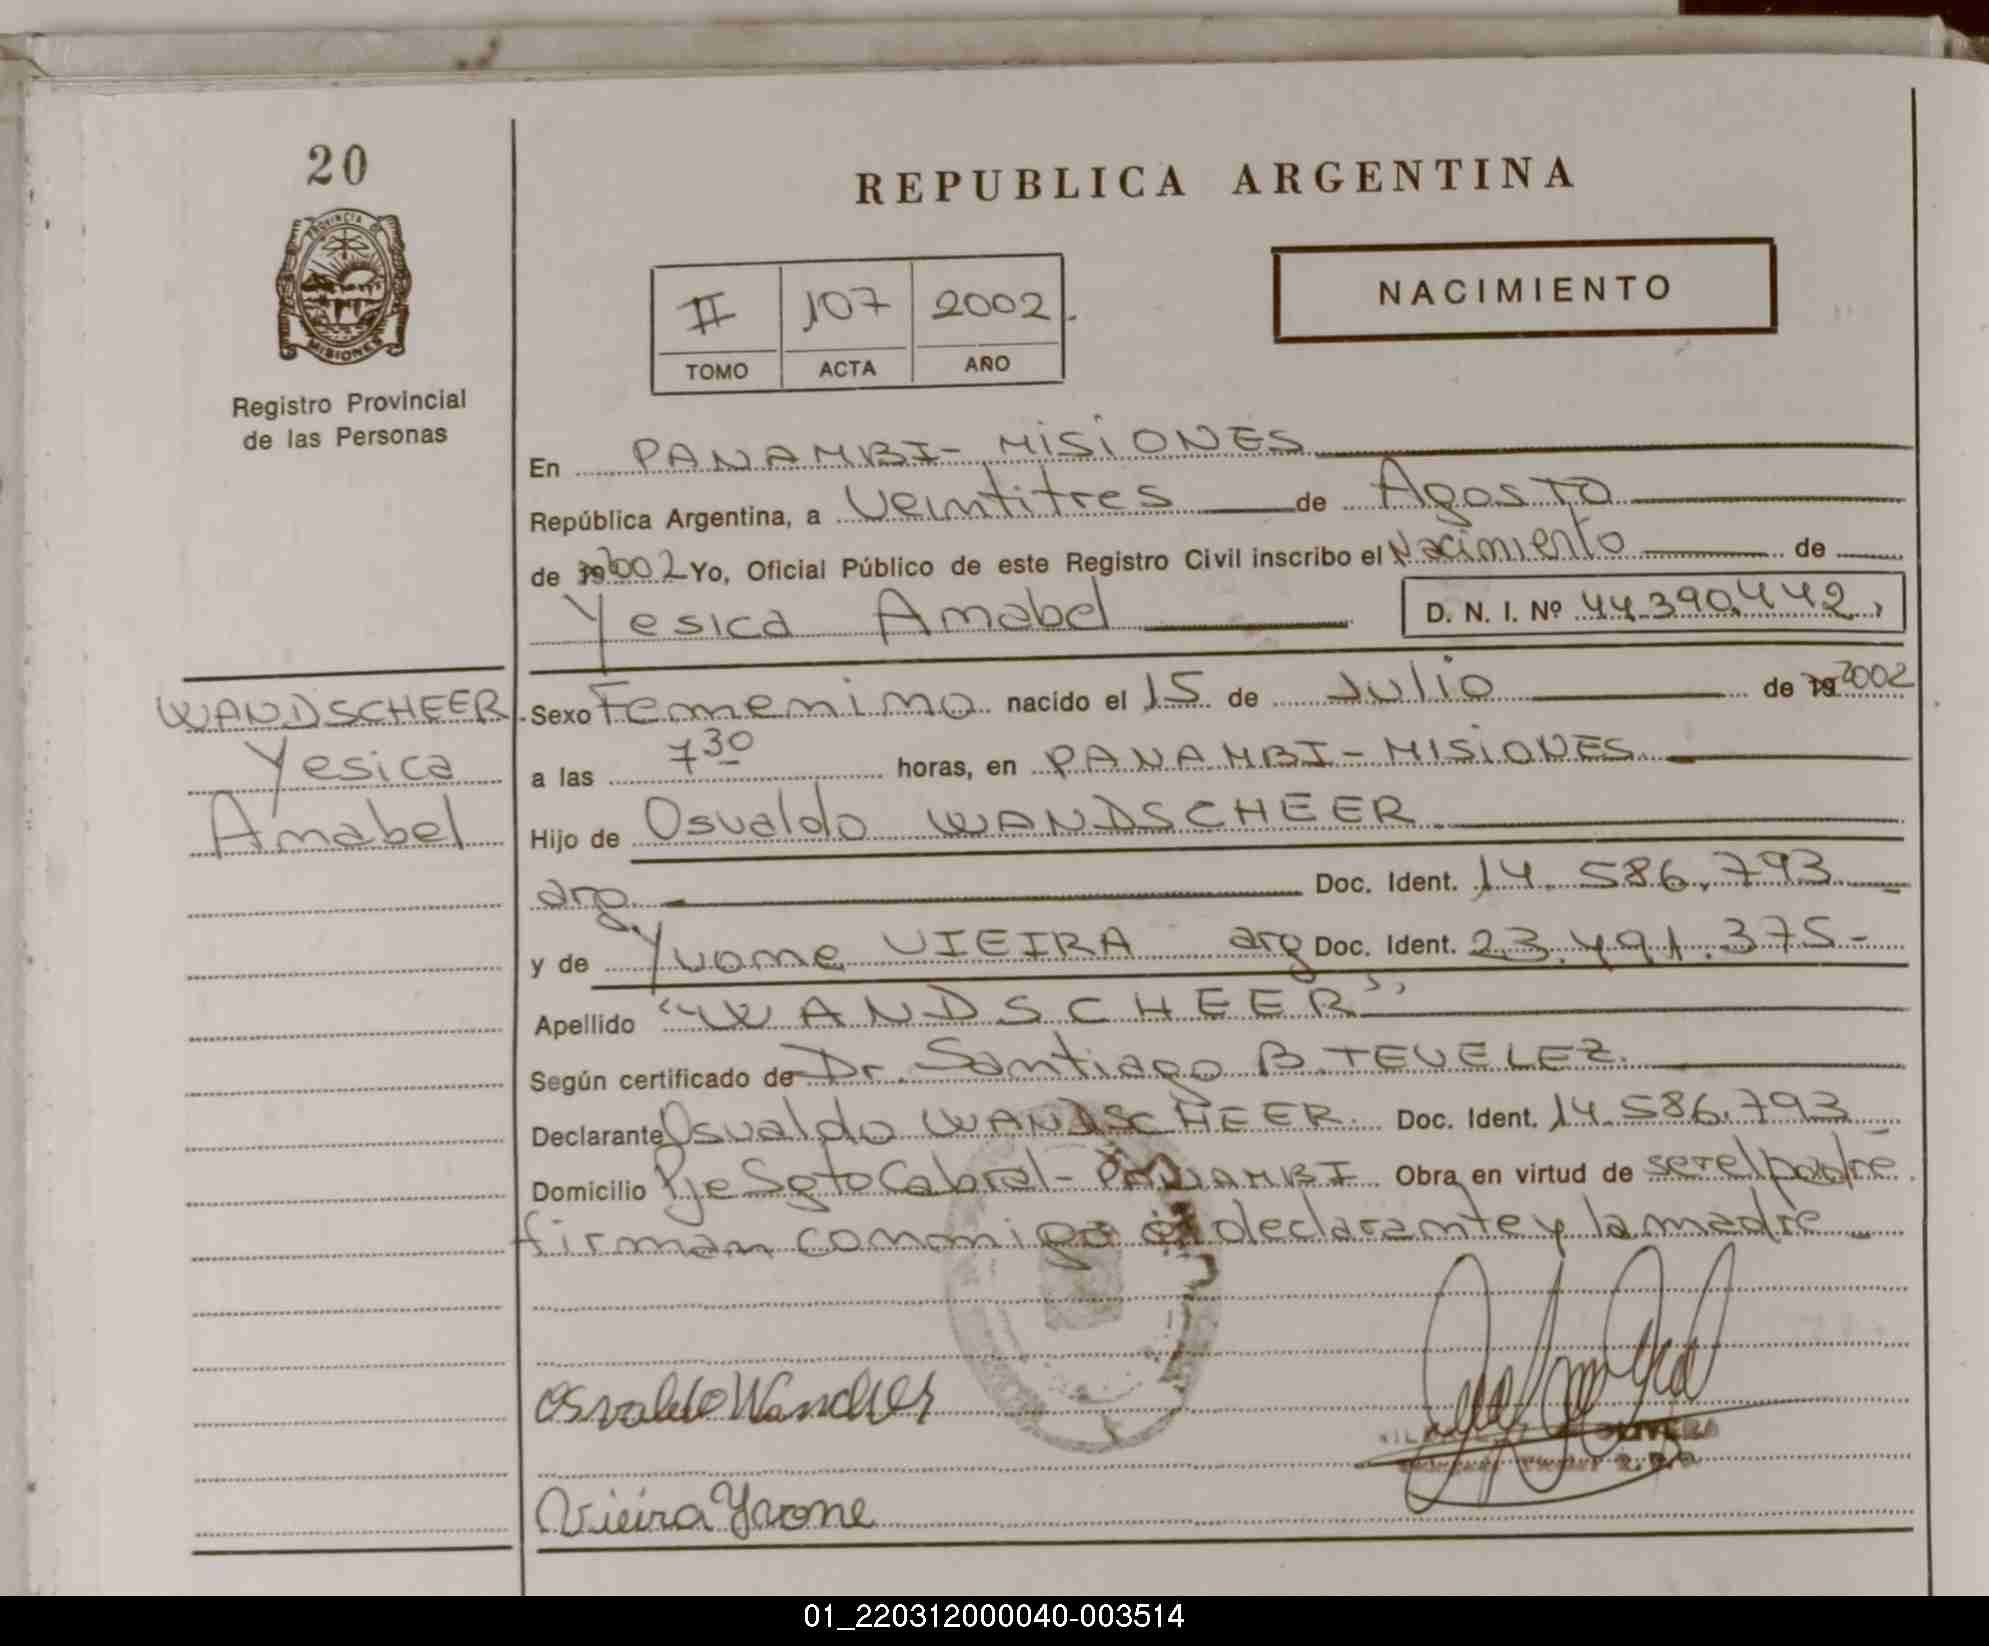 20
REPUBLICA ARGENTINA
PROVINCIA DE
MISIONES
Registro Provincial
de las Personas
II 107 2002
TOMO ACTA AÑO
NACIMIENTO
En PANAMBI - MISIONES
República Argentina, a Veintitres de Agosto
de 2002 Yo, Oficial Público de este Registro Civil inscribo el Nacimiento de
Yesica Amabel D. N. I. Nº 44.390.442
WANDSCHEER
Yesica
Amabel
Sexo Femenino nacido el 15 de Julio de 19 2002
a las 7 30 horas, en PANAMBI - MISIONES
Hijo de Osvaldo WANDSCHEER
arg. Doc. Ident. 14.586.793
y de Yvone VIEIRA arg Doc. Ident. 23.491.375-
Apellido "WANDSCHEER"
Según certificado de Dr. Santiago B. TEVELEZ
Declarante Osvaldo WANDSCHEER Doc. Ident. 14.586.793
Domicilio Pje Sgto Cabral - PANAMBI Obra en virtud de ser el padre
firman conmigo el declarante y la madre
Osvaldo
OLIVERA
Vieira Yvone
01_220312000040-003514